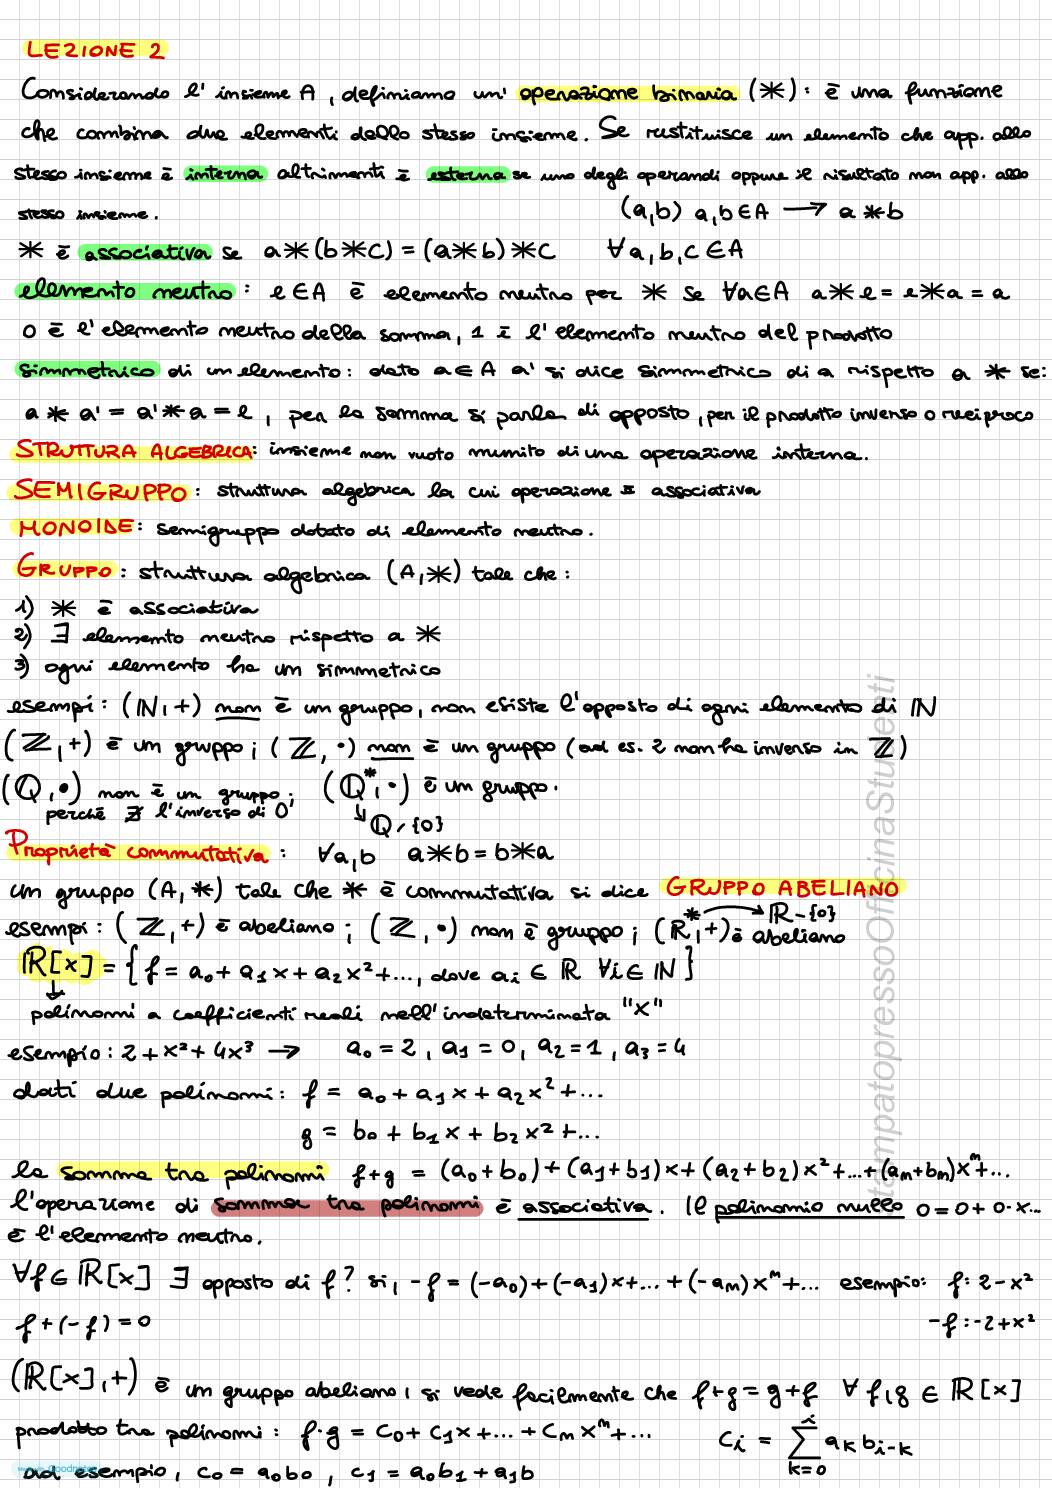 LEZIONE 2
Considerando l'insieme A, definiamo un' operazione binaria (*): è una funzione
che combina due elementi dello stesso insieme. Se restituisce un elemento che app. allo
stesso insieme è interna altrimenti è esterna se uno degli operandi oppure il risultato non app. allo
stesso insieme. (a,b) a,b∈A → a*b
* è associativa se a*(b*c) = (a*b)*c ∀a,b,c∈A
elemento neutro: e∈A è elemento neutro per * se ∀a∈A a*e = e*a = a
0 è l'elemento neutro della somma, 1 è l'elemento neutro del prodotto
simmetrico di un elemento: dato a∈A a' si dice simmetrico di a rispetto a * se:
a*a' = a'*a = e, per la somma si parla di opposto, per il prodotto inverso o reciproco
STRUTTURA ALGEBRICA: insieme non vuoto munito di una operazione interna.
SEMIGRUPPO: struttura algebrica la cui operazione è associativa
MONOIDE: semigruppo dotato di elemento neutro.
GRUPPO: struttura algebrica (A,*) tale che:
1) * è associativa
2) ∃ elemento neutro rispetto a *
3) ogni elemento ha un simmetrico
esempi: (ℕ,+) non è un gruppo, non esiste l'opposto di ogni elemento di ℕ
(ℤ,+) è un gruppo; (ℤ,·) non è un gruppo (ad es. 2 non ha inverso in ℤ)
(ℚ,·) non è un gruppo; (ℚ*,·) è un gruppo.
perché ∄ l'inverso di 0 ↳ ℚ-{0}
Proprietà commutativa: ∀a,b a*b = b*a
un gruppo (A,*) tale che * è commutativa si dice GRUPPO ABELIANO
esempi: (ℤ,+) è abeliano; (ℤ,·) non è gruppo; (ℝ*,+) è abeliano → ℝ-{0}
ℝ[x] = {f = a₀ + a₁x + a₂x² + ..., dove aᵢ ∈ ℝ ∀i∈ℕ}
↓
polinomi a coefficienti reali nell'indeterminata "x"
esempio: 2+x²+4x³ → a₀=2, a₁=0, a₂=1, a₃=4
dati due polinomi: f = a₀ + a₁x + a₂x² + ...
g = b₀ + b₁x + b₂x² + ...
la somma tra polinomi f+g = (a₀+b₀)+(a₁+b₁)x+(a₂+b₂)x²+...+(aₙ+bₙ)xⁿ+...
l'operazione di somma tra polinomi è associativa. Il polinomio nullo 0=0+0·x...
è l'elemento neutro.
∀f∈ℝ[x] ∃ opposto di f? si, -f = (-a₀)+(-a₁)x+...+(-aₙ)xⁿ+... esempio: f: 2-x²
f+(-f)=0 -f: -2+x²
(ℝ[x],+) è un gruppo abeliano, si vede facilmente che f+g=g+f ∀ f,g ∈ ℝ[x]
prodotto tra polinomi: f·g = c₀+c₁x+...+cₙxⁿ+... cᵢ = ∑ᵢₖ₌₀ aₖbᵢ₋ₖ
ad esempio, c₀=a₀b₀, c₁=a₀b₁+a₁b
StampatopressoOfficinaStudenti
Goodnotes